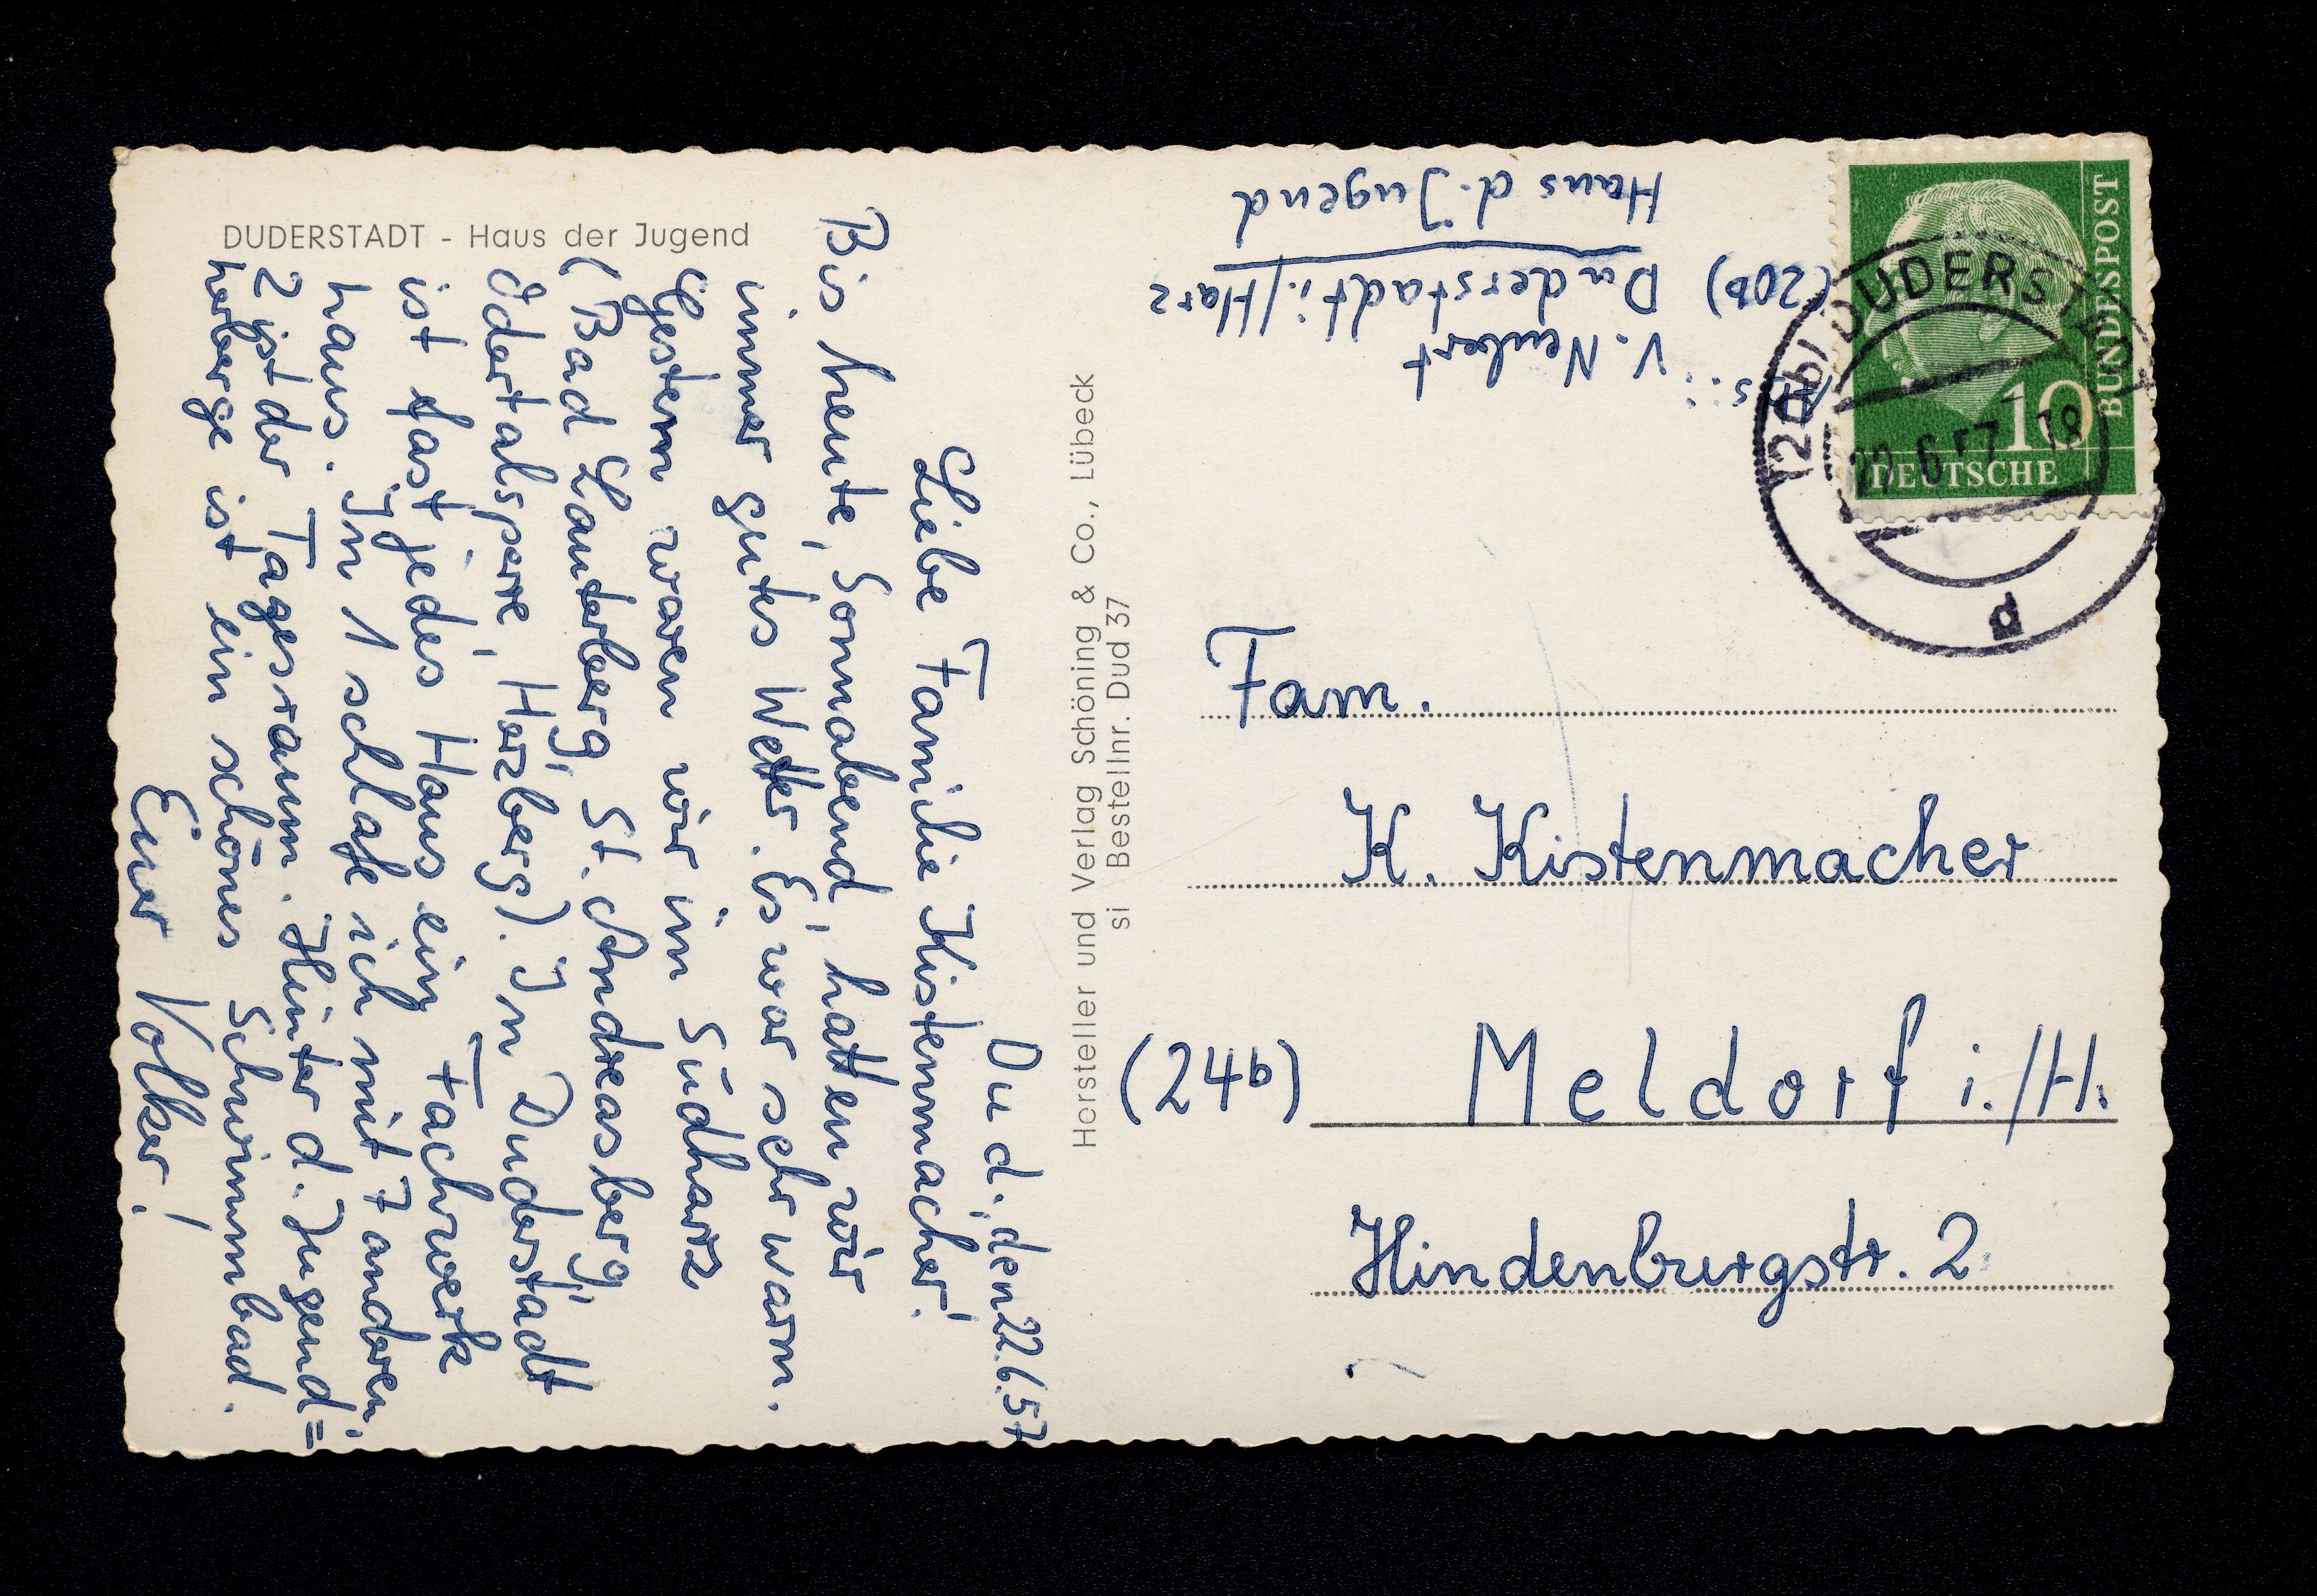 DUDERSTADT - Haus der Jugend
Dud., den 22.6.57
Liebe Familie Kistenmacher!
Bis heute, Sonnabend, hatten wir
immer gutes Wetter. Es war sehr warm.
Gestern waren wir im Südharz
(Bad Lauterberg, St. Andreasberg,
Odertalsperre, Herzberg). In Duderstadt
ist fast jedes Haus ein Fachwerk
haus. In 1 schlafe ich mit 7 anderen,
2 ist der Tagesraum. Hinter d. Jugend=
herberge ist ein schönes Schwimmbad.
Euer Volker!
Hersteller und Verlag Schöning & Co., Lübeck
si Bestellnr. Dud 37
Abs.: V. Neubert
(20b) Duderstadt i./Harz
Haus d. Jugend
DEUTSCHE
BUNDESPOST
10
(20b) DUDERSTADT
22.6.57.18
d
Fam.
K. Kistenmacher
(24b) Meldorf i./H.
Hindenburgstr. 2